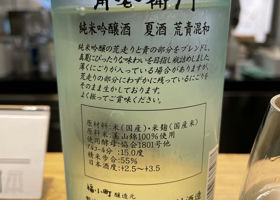 純米吟醸酒 夏酒 荒責混和
純米吟醸の荒走りと責の部分をブレンドし、
真夏にぴったりな味わいを目指し瓶詰めしました
薄にごりが入っている場合がありますが、
荒走りの部分にわずかに残っているにごりで
そのまま召し上がれます。
よく振ってご賞味ください。
原材料:米(国産)・米麹(国産米)
原料米:美山錦100%使用
使用酵母:協会1801号他
アルコール分:15.0度
精米歩合:55%
日本酒度:+2.5~+3.5
福小町 醸造元